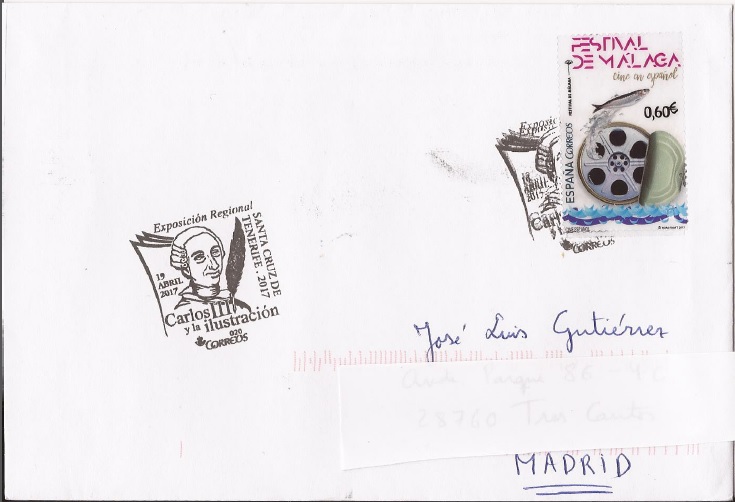 FESTIVAL
DE MÁLAGA
cine en español
FESTIVAL DE MÁLAGA
0,60€
ESPAÑA CORREOS
Exposición
19
ABRIL
2017
Carl
CORREOS
Exposición Regional
SANTA CRUZ DE
TENERIFE . 2017
19
ABRIL
2017
Carlos III
y la ilustración
020
CORREOS
José Luis Gutiérrez
28760 Tres Cantos
MADRID